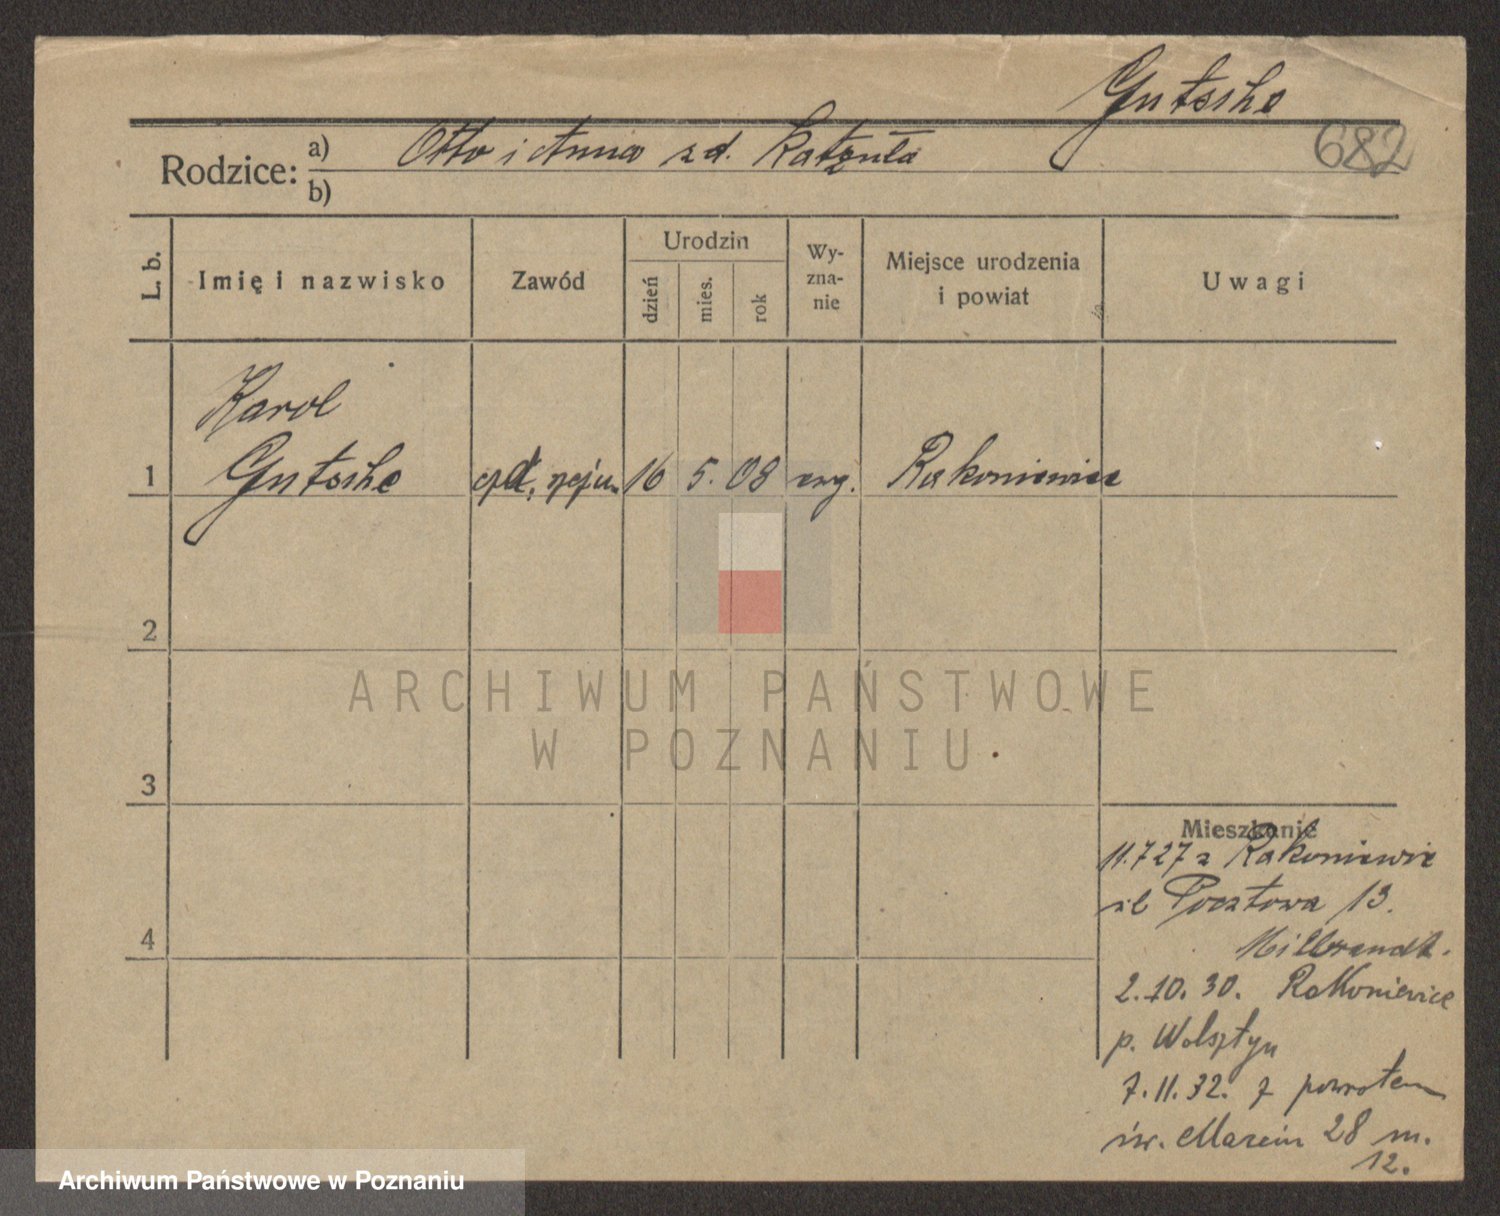 Gutsche
682
Rodzice: a) Otto i Anna zd. Katzuła
b)
L. b.
Imię i nazwisko
Zawód
Urodzin
dzień
mies.
rok
Wy-
zna-
nie
Miejsce urodzenia
i powiat
Uwagi
Karol
1 Gutsche 16 5. 08 ewg. Rakoniewice
2
ARCHIWUM PAŃSTWOWE
W POZNANIU
3
4
Mieszkanie
11.7 27 z Rakoniewic
ul Pocztowa 13.
Milbrandt.
2.10.30. Rakoniewice
p. Wolsztyn
7.11.32. z powrotem
św. Marcin 28 m.
12.
Archiwum Państwowe w Poznaniu